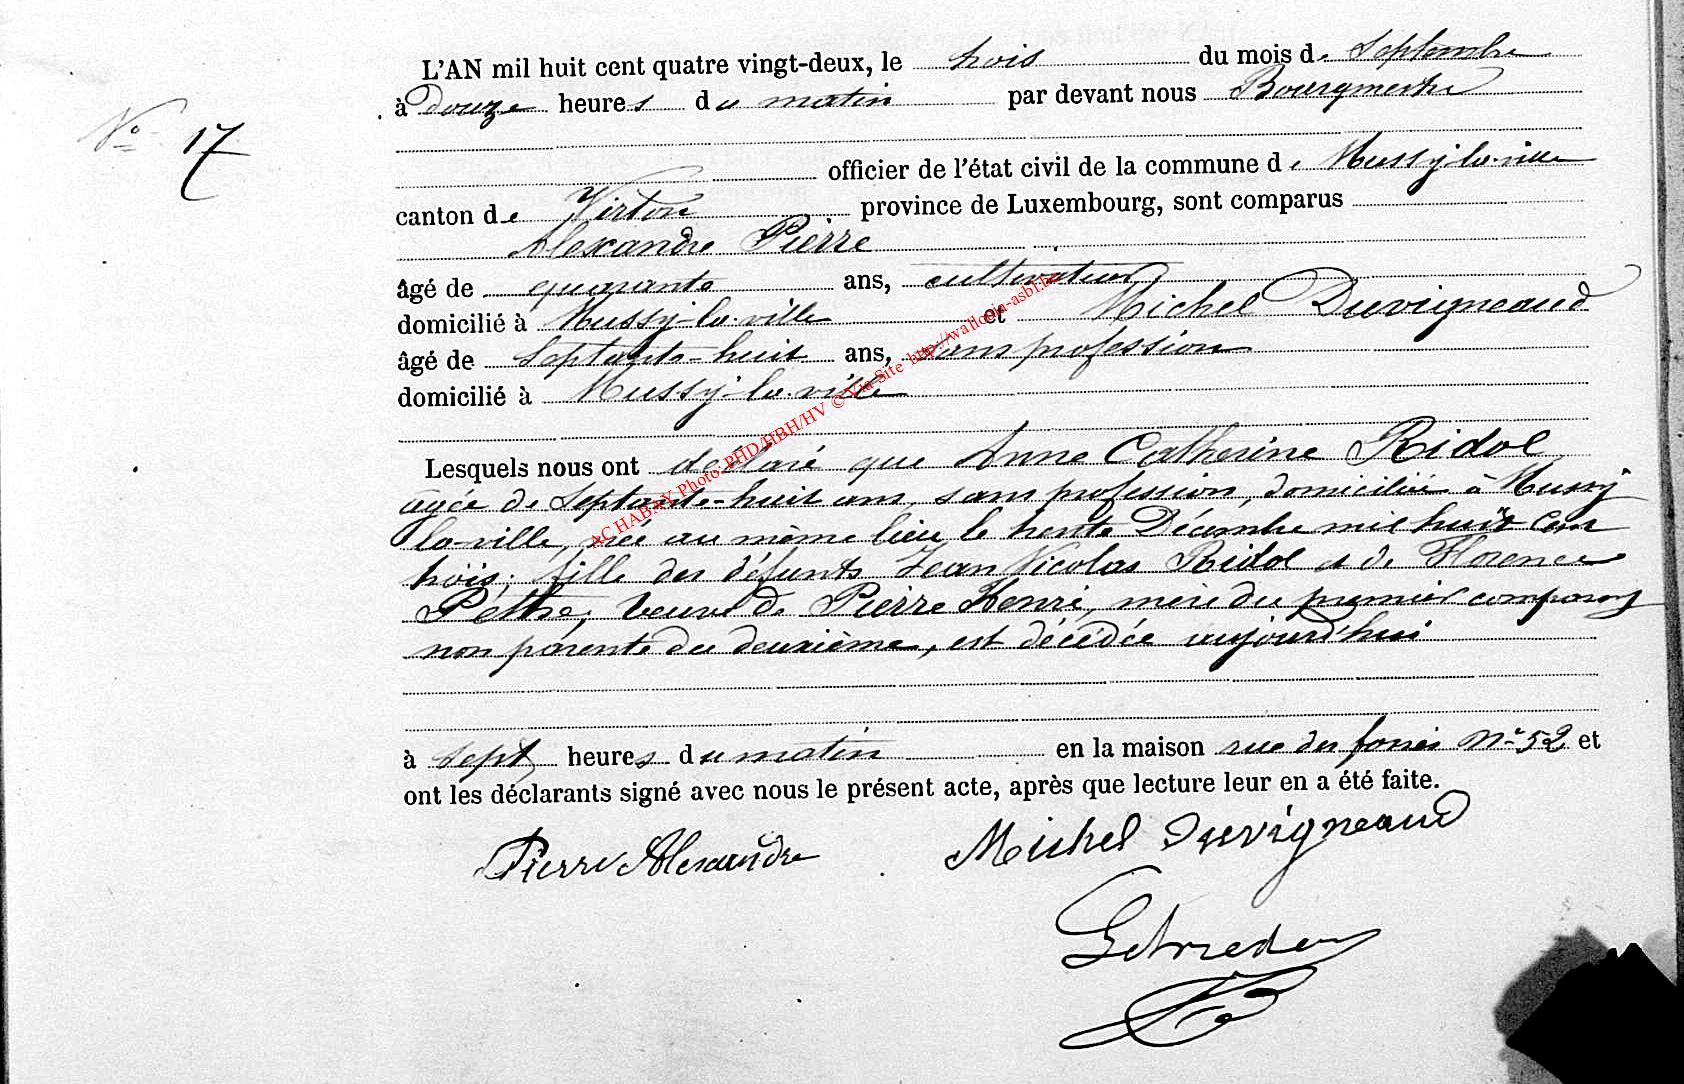 L'AN mil huit cent quatre vingt-deux, le trois du mois de Septembre
à douze heures du matin par devant nous Bourgmestre
N° 17
officier de l'état civil de la commune de Mussy-la-ville
canton de Virton province de Luxembourg, sont comparus
Alexandre Pierre
âgé de quarante ans, cultivateur,
domicilié à Mussy-la-ville et Michel Duvigneaud
âgé de Septante-huit ans, sans profession
domicilié à Mussy-la-ville
Lesquels nous ont déclaré que Anne Catherine Ridol
agée de Septante-huit ans, sans profession, domiciliée à Mussy
la-ville, née au même lieu le trente Décembre mil huit cent
trois, fille des défunts Jean Nicolas Ridol et de Florence
Pêtre, veuve de Pierre Henri, mère du premier comparant
non parente du deuxième, est décédée aujourd'hui
à sept heures du matin en la maison rue des fossés N° 52 et
ont les déclarants signé avec nous le présent acte, après que lecture leur en a été faite.
Pierre Alexandre Michel Duvigneaud
AC HABAY Photo: PHD/HBH/HV © Via Site http://wallonia-asbl.be